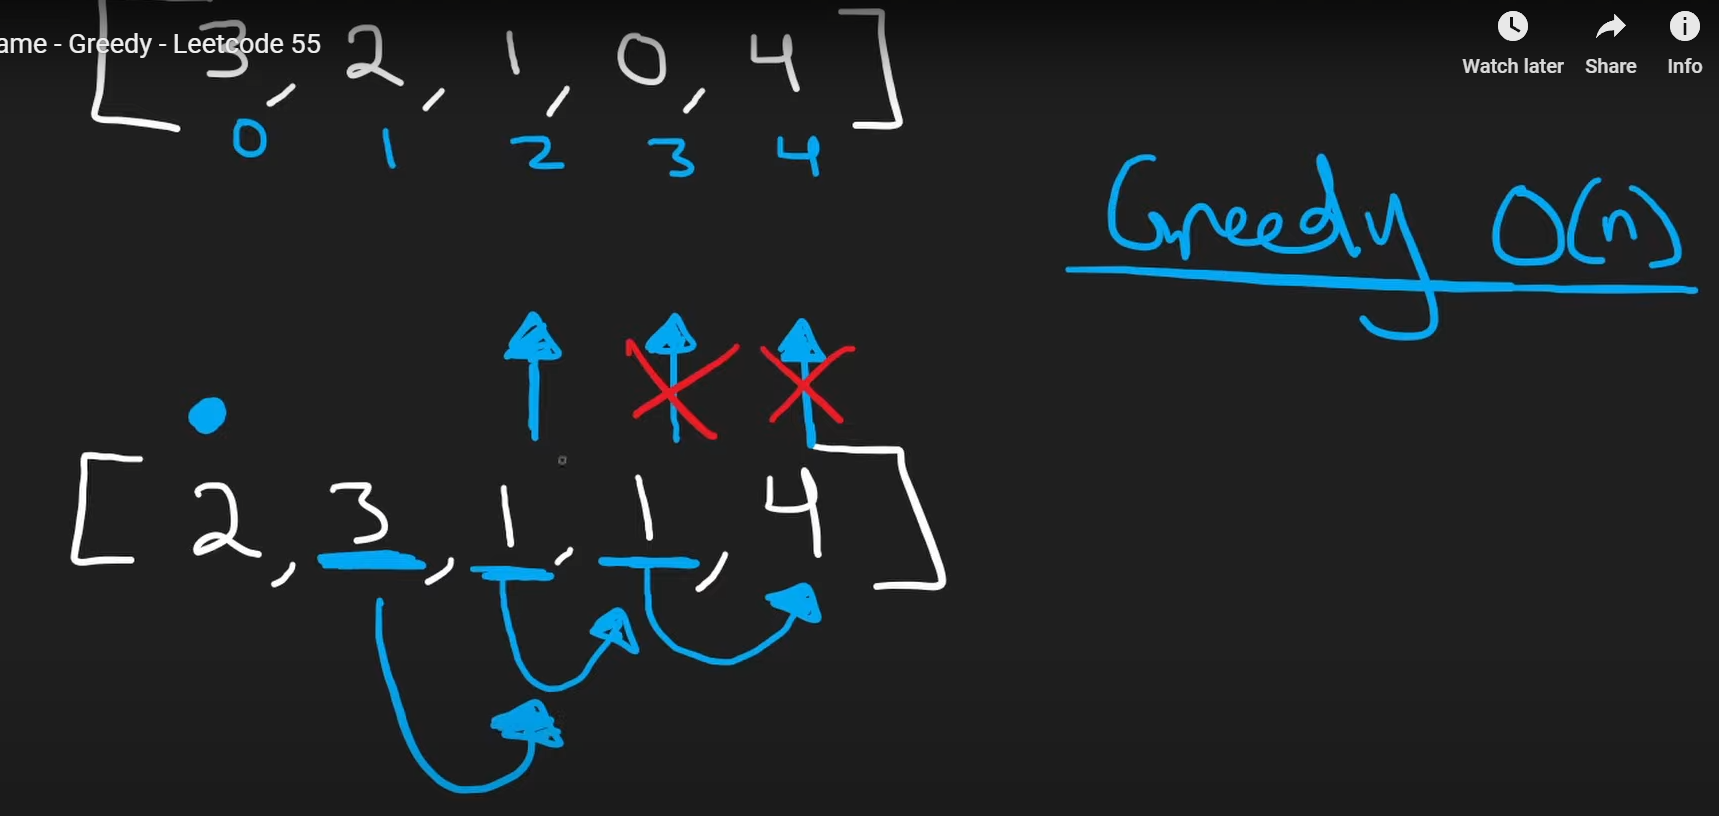 ame - Greedy - Leetcode 55
[ 3, 2, 1, 0, 4 ]
Watch later Share Info
0 1 2 3 4
Greedy O(n)
[ 2, 3, 1, 1, 4 ]